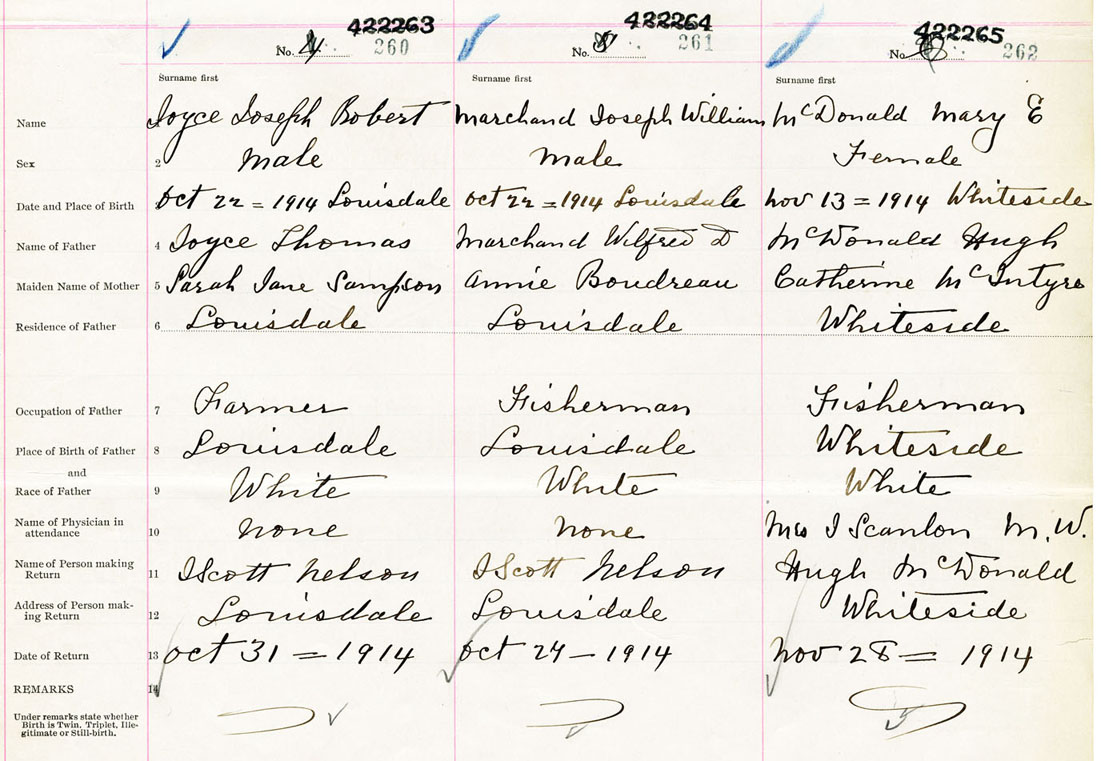 422263 422264 422265
No. 4 260 No. 5 261 No. 6 262
Surname first Surname first Surname first
Name 1 Joyce Joseph Robert Marchand Joseph William McDonald Mary E
Sex 2 male male Female
Date and Place of Birth 3 Oct 22 = 1914 Louisdale Oct 22 = 1914 Louisdale Nov 13 = 1914 Whiteside
Name of Father 4 Joyce Thomas Marchand Wilfred D McDonald Hugh
Maiden Name of Mother 5 Sarah Jane Sampson Annie Boudreau Catherine McIntyre
Residence of Father 6 Louisdale Louisdale Whiteside
Occupation of Father 7 Farmer Fisherman Fisherman
Place of Birth of Father 8 Louisdale Louisdale Whiteside
and
Race of Father 9 White White White
Name of Physician in
attendance 10 none none Mrs J Scanlon M.W.
Name of Person making
Return 11 J Scott Nelson J Scott Nelson Hugh McDonald
Address of Person mak-
ing Return 12 Louisdale Louisdale Whiteside
Date of Return 13 Oct 31 = 1914 Oct 24 - 1914 Nov 28 = 1914
REMARKS 14
Under remarks state whether
Birth is Twin, Triplet, Ille-
gitimate or Still-birth.